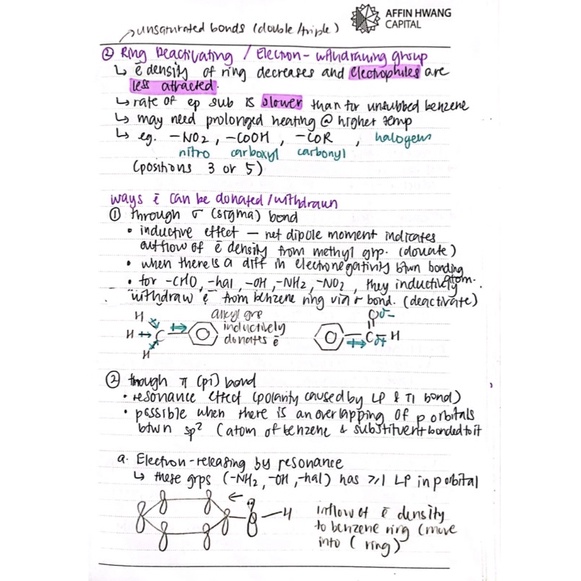 AFFIN HWANG
CAPITAL
unsaturated bonds (double/triple)
② Ring Deactivating / Electron-withdrawing group
↳ ē density of ring decreases and electrophiles are
less attracted.
↳ rate of ep sub is slower than for unsubbed benzene
↳ may need prolonged heating @ higher temp
↳ eg. -NO2, -COOH, -COR, halogens
nitro carboxyl carbonyl
(positions 3 or 5)
ways ē can be donated/withdrawn
① through σ (sigma) bond
• inductive effect — net dipole moment indicates
outflow of ē density from methyl grp. (donate)
• when there is a diff in electronegativity btwn bonding
atom.
• for -CHO, -hal, -OH, -NH2, -NO2, they inductively
withdraw ē from benzene ring via σ bond. (deactivate)
H
H C
H
alkyl grp
inductively
donates ē
Oδ-
Cδ+ H
② through π (pi) bond
• resonance effect (polarity caused by LP & π bond)
• possible when there is an overlapping of p orbitals
btwn sp² C atom of benzene & substituent bonded to it
a. Electron-releasing by resonance
↳ these grps (-NH2, -OH, -hal) has ≥1 LP in p orbital
H
inflow of ē density
to benzene ring (move
into ( ring)